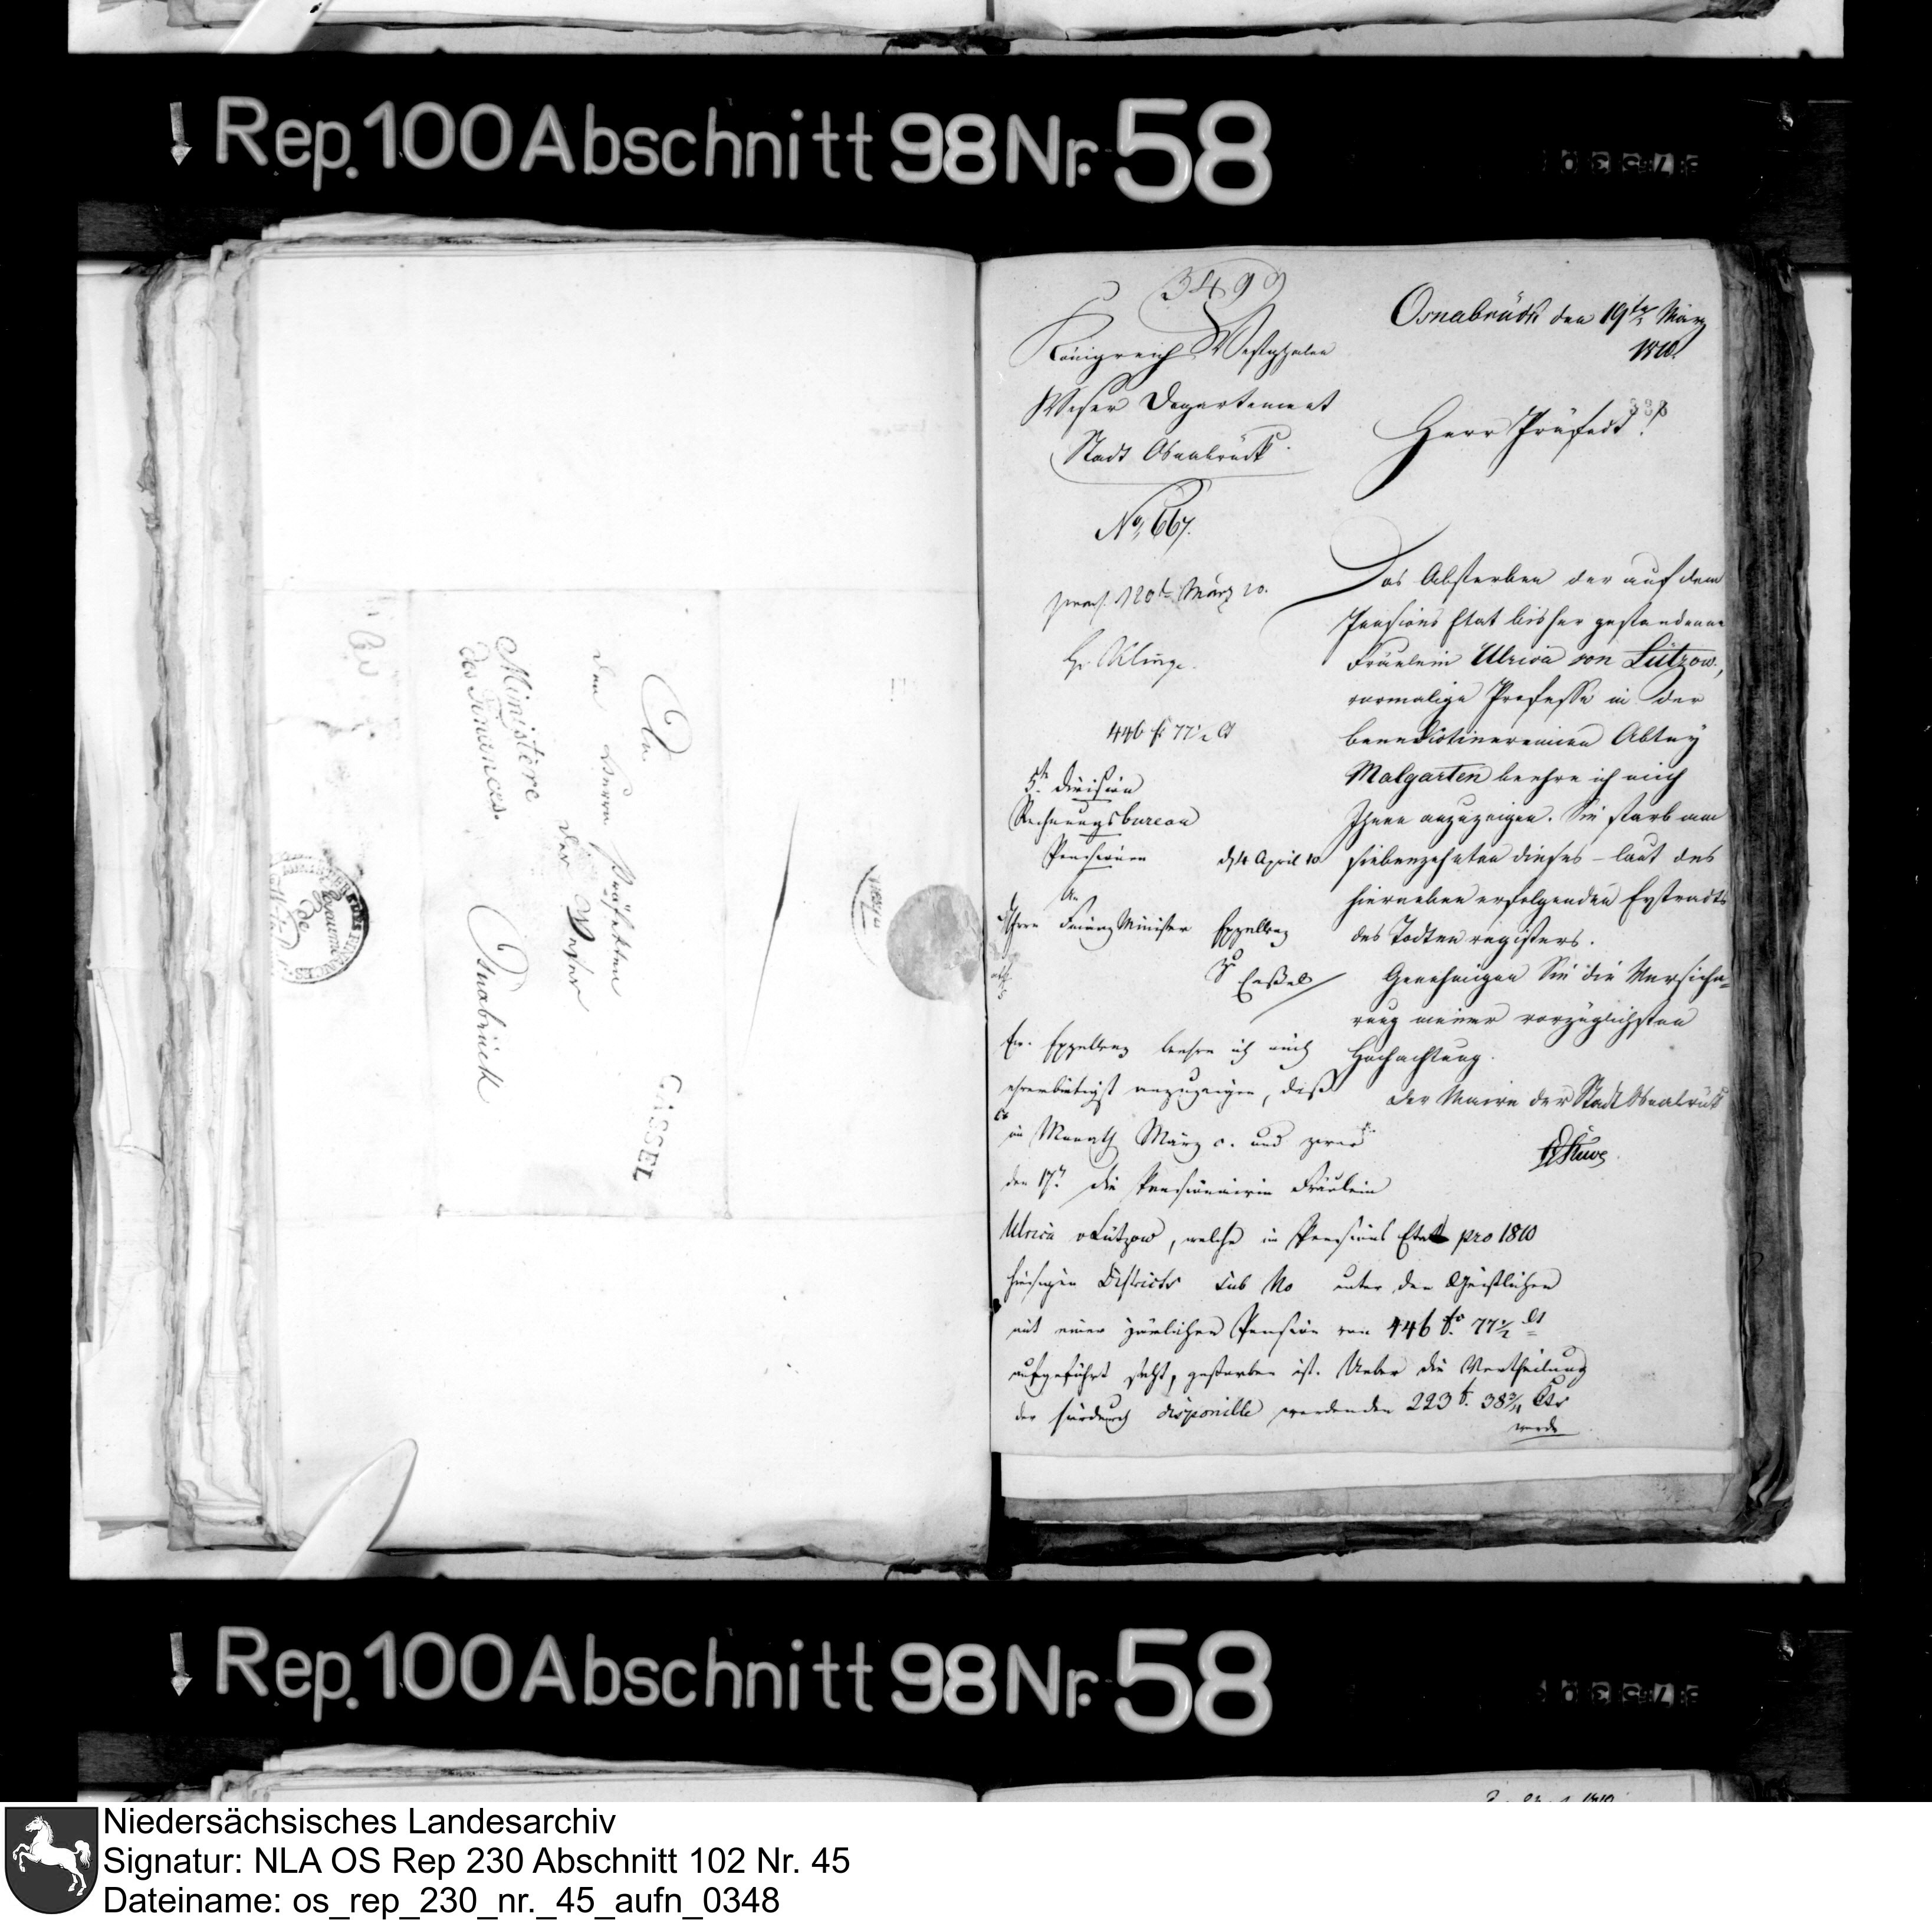 Rep. 100 Abschnitt 98 Nr. 58
An
den Herrn Präfekten
der Weser
Osnabrück
Ministère
des Finances.
CASSEL
3499
Königreich Westphalen
Weser Departement
Stadt Osnabrück.
No. 667.
präs. d 20t März 10.
H. Klinge.
446 fr 77 1/2 Ct
5te Division
Rechnungsbureau
Pensionen
d 4 April 10
An
Finanz Minister Exzellenz
Cassel
Ew. Exzellenz beehre ich mich
ehrerbietigst anzuzeigen, daß
im Monath März c. und zwar
den 17n die Pensionairin Fräulein
Ulrica v Lützow, welche im Pensions Etat pro 1810
hiesigen Districts sub No unter den Geistlichen
mit einer jährlichen Pension von 446 fr. 77 1/2 Ct
aufgeführt steht, gestorben ist. Ueber die Vertheilung
der hierdurch disponible werdenden 223 f. 38 3/4 Cts
werde
Osnabrück den 19ten März
1810.
338
Herr Präfect!
Das Absterben der auf dem
Pensions Etat bisher gestandenen
Fräulein Ulrica von Lützow,
vormalige Professe in der
benedictinerinnen Abtey
Malgarten beehre ich mich
Ihnen anzuzeigen. Sie starb am
siebenzehnten dieses – laut des
hierneben erfolgenden Extracts
des Todten registers.
Genehmigen Sie die Versiche-
rung meiner vorzüglichsten
Hochachtung.
Der Maire der Stadt Osnabrück
Stüve
Rep. 100 Abschnitt 98 Nr. 58
Niedersächsisches Landesarchiv
Signatur: NLA OS Rep 230 Abschnitt 102 Nr. 45
Dateiname: os_rep_230_nr._45_aufn_0348